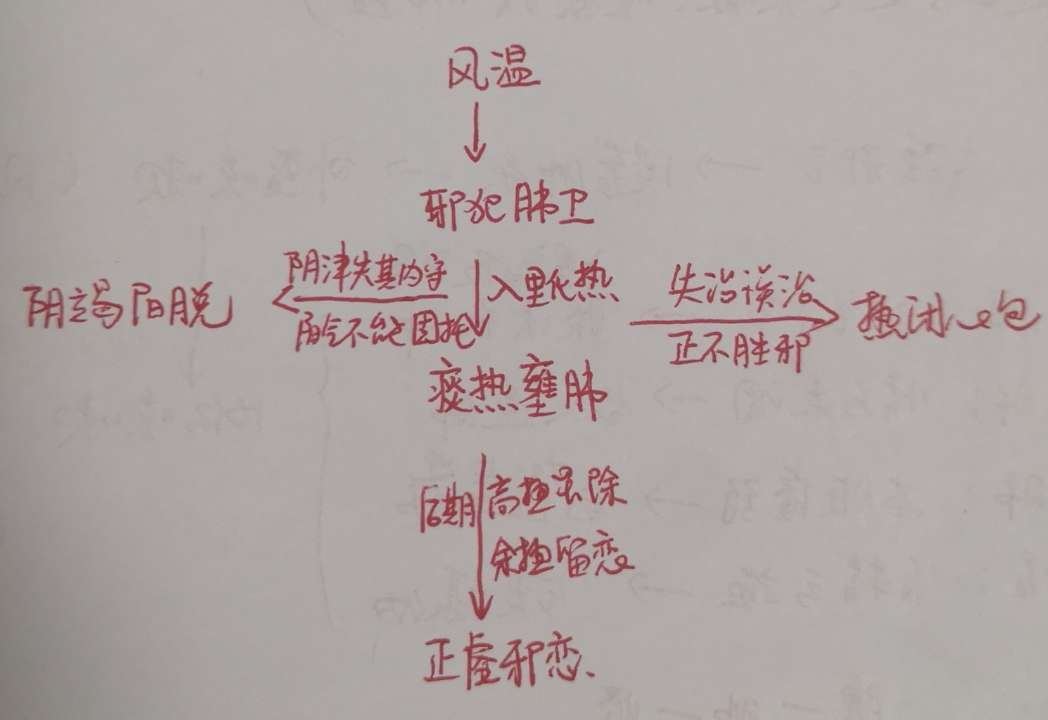 风温
邪犯肺卫
阴津失其内守
入里化热
失治误治
阴竭阳脱
热闭心包
阳气不能固托
正不胜邪
痰热壅肺
后期
高热虽除
余热留恋
正虚邪恋、